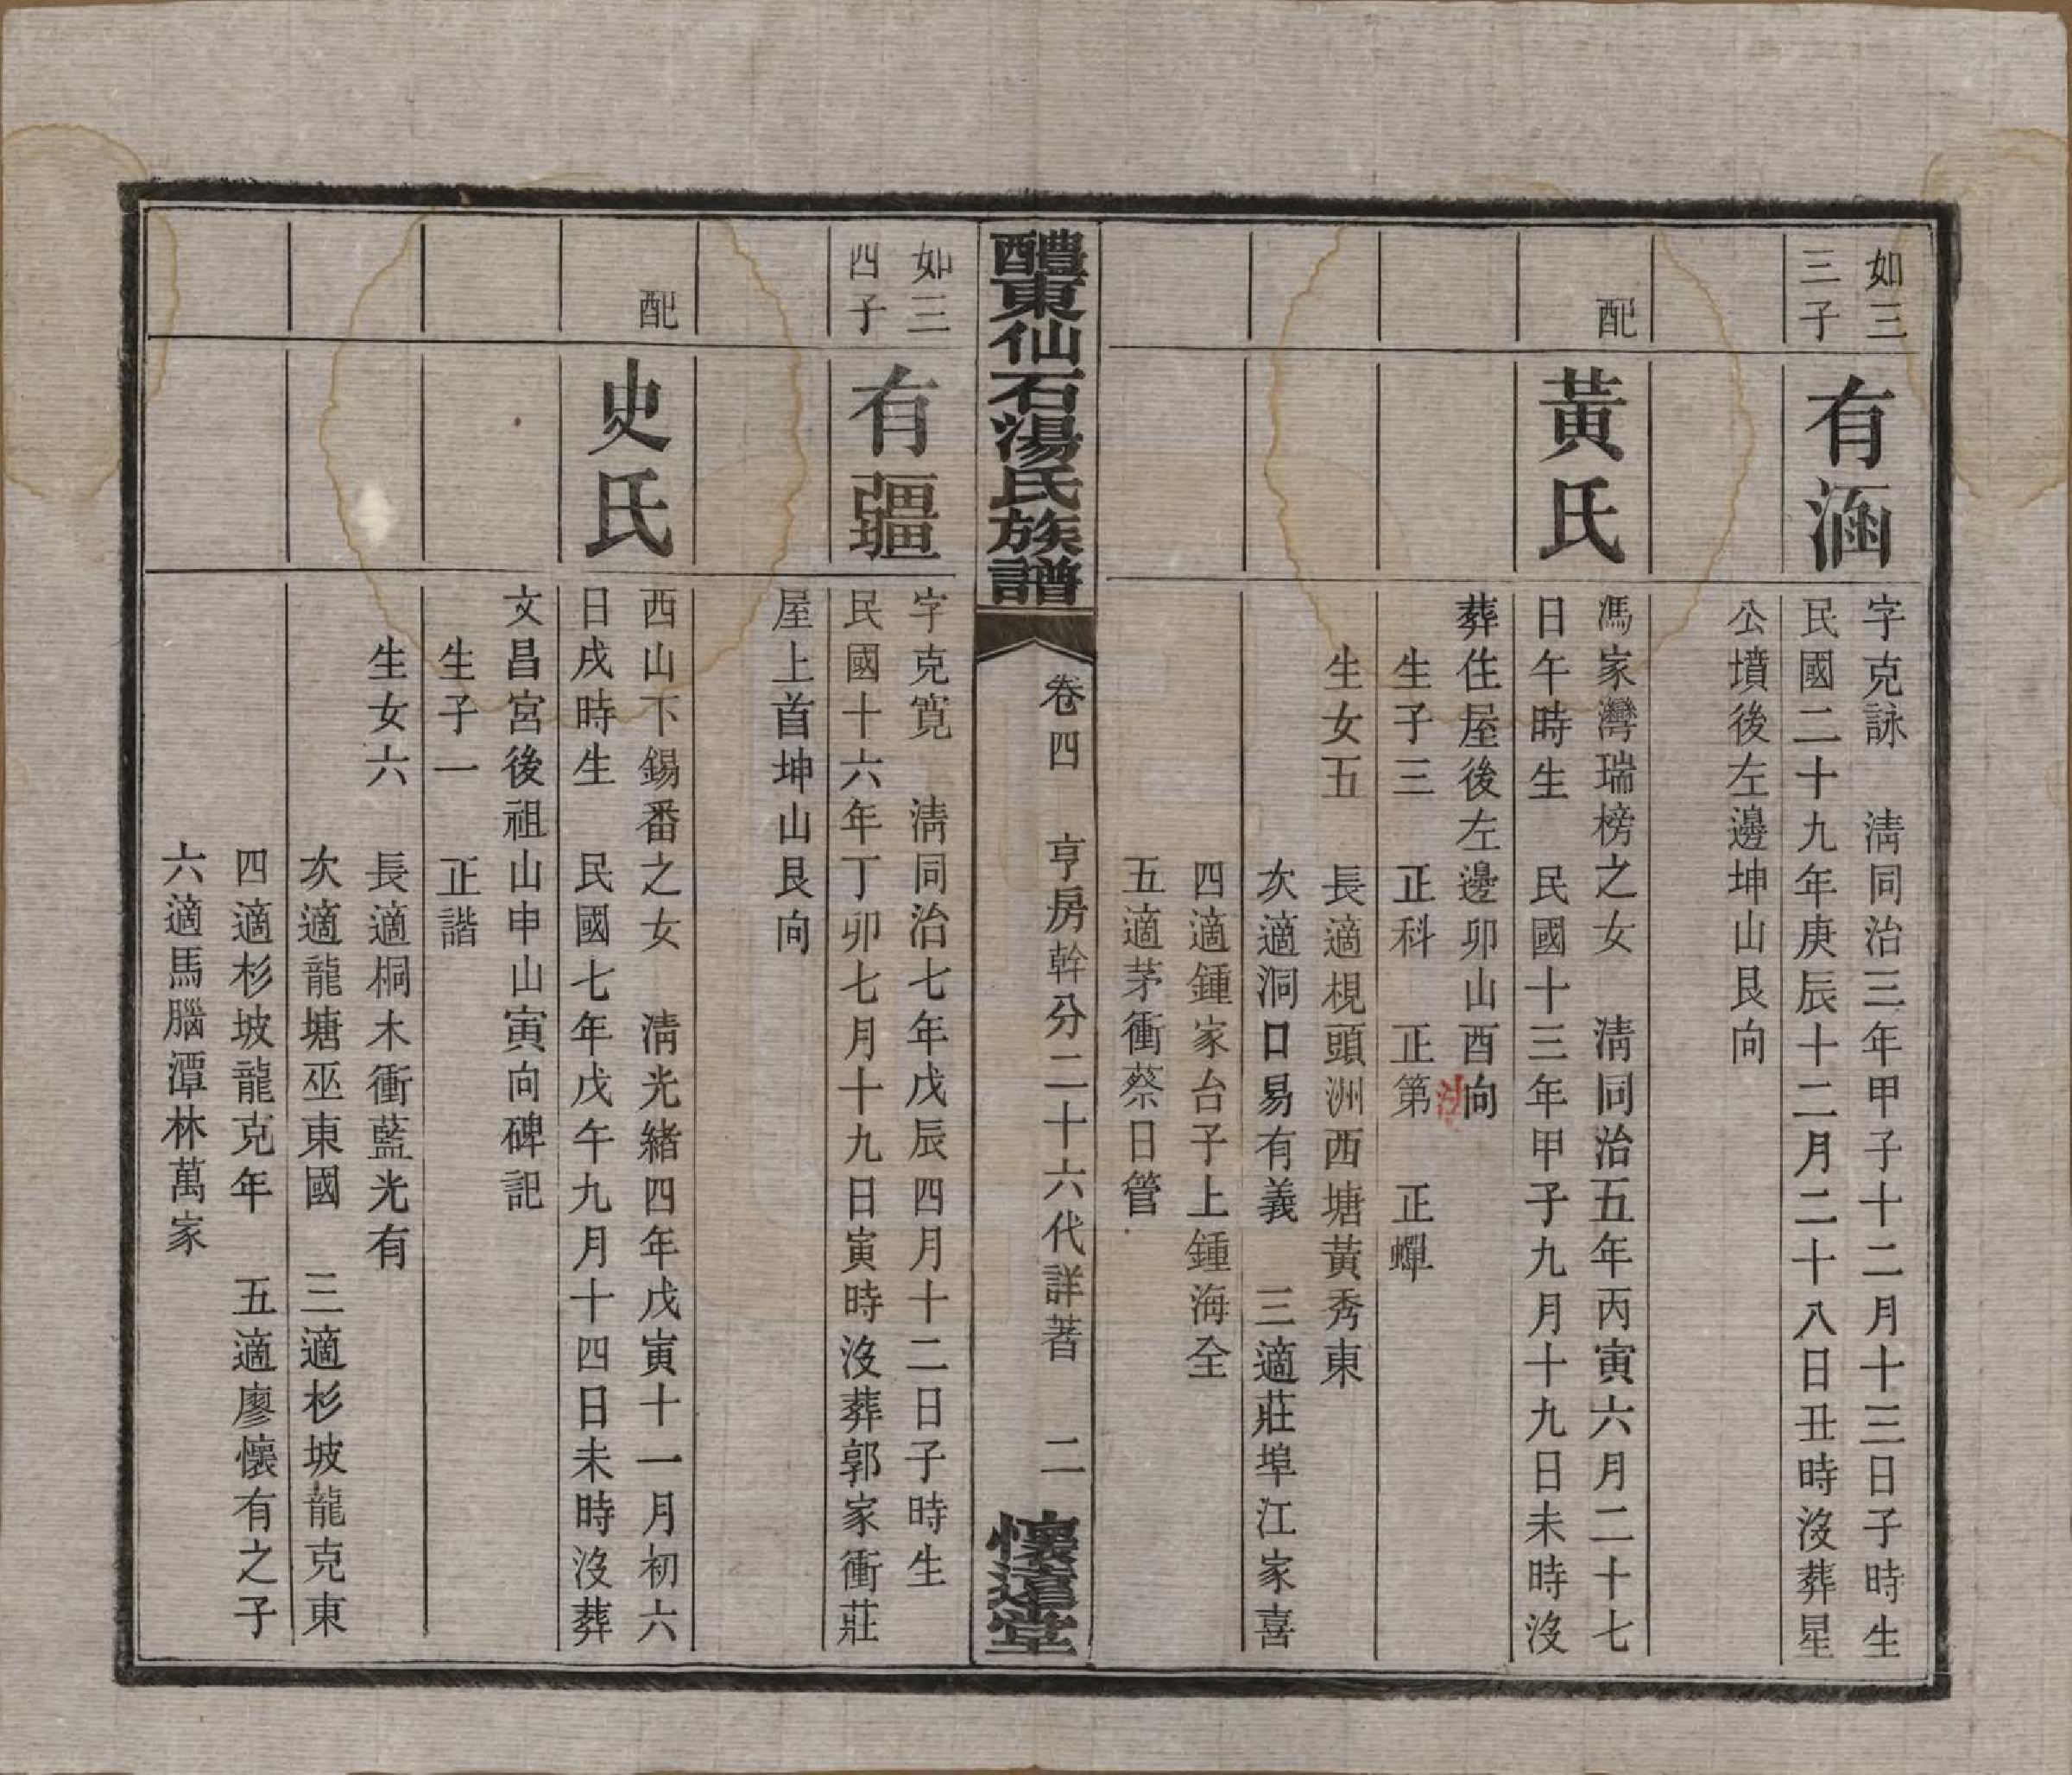 如三
三子
有涵
字克詠　清同治三年甲子十二月十三日子時生
民國二十九年庚辰十二月二十八日丑時沒葬星
公墳後左邊坤山艮向
配
黃氏
馮家灣瑞榜之女　清同治五年丙寅六月二十七
日午時生　民國十三年甲子九月十九日未時沒
葬住屋後左邊卯山酉向
生子三　正科　正第　正蟬
生女五　長適梘頭洲西塘黃秀東
次適洞口易有義　三適莊埠江家喜
四適鍾家台子上鍾海全
五適茅衝蔡日管
醴東仙石湯氏族譜
卷四　亨房幹分二十六代詳著　二
懷遠堂
如三
四子
有疆
字克寬　清同治七年戊辰四月十二日子時生
民國十六年丁卯七月十九日寅時沒葬郭家衝莊
屋上首坤山艮向
配
史氏
西山下錫番之女　清光緒四年戊寅十一月初六
日戌時生　民國七年戊午九月十四日未時沒葬
文昌宮後祖山申山寅向碑記
生子一　正諧
生女六　長適桐木衝藍光有
次適龍塘巫東國　三適杉坡龍克東
四適杉坡龍克年　五適廖懷有之子
六適馬腦潭林萬家